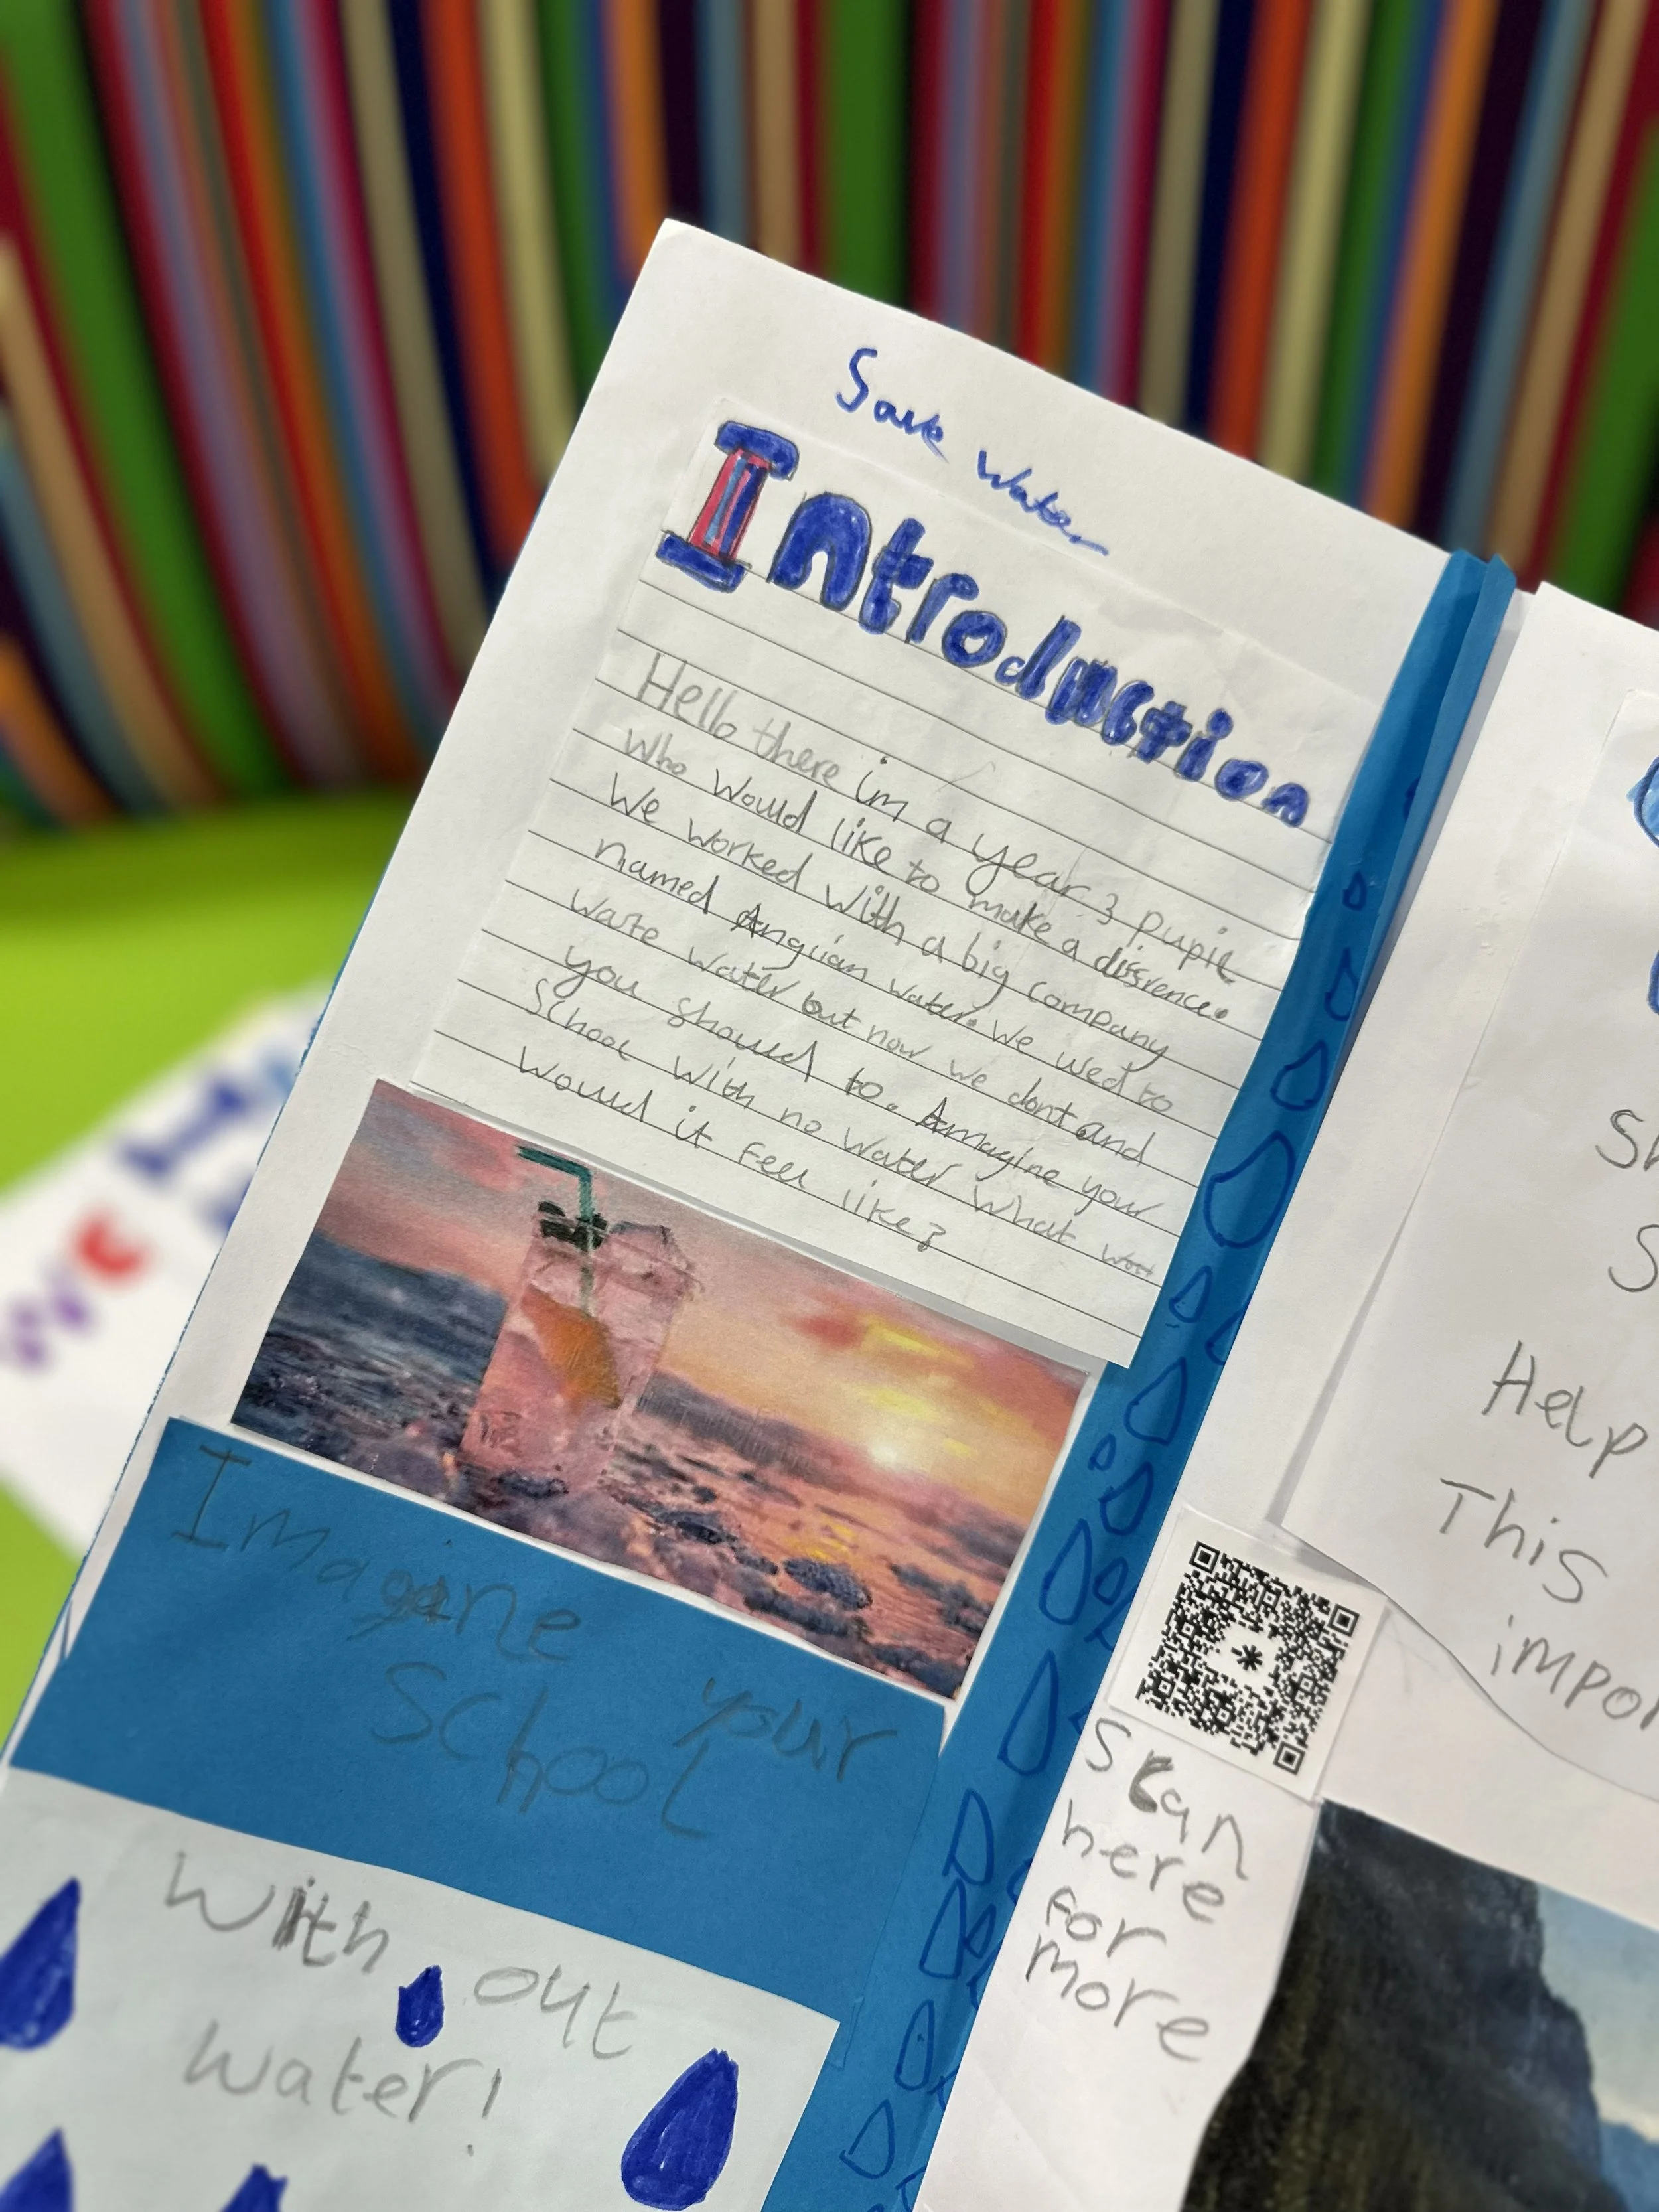 Save Water
Introduction
Hello there im a year 3 pupil
who would like to make a disrence.
We worked with a big company
named Anglian water. We used to
waste water but now we dont and
you should to. Amagine your
School with no water what
would it feel like?
Imagine your
School
With out
water!
Help
This
Scan
here
for
more